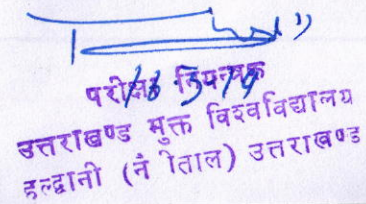 परीक्षा नियन्त्रक
उत्तराखण्ड मुक्त विश्वविद्यालय
हल्द्वानी (नैनीताल) उत्तराखण्ड